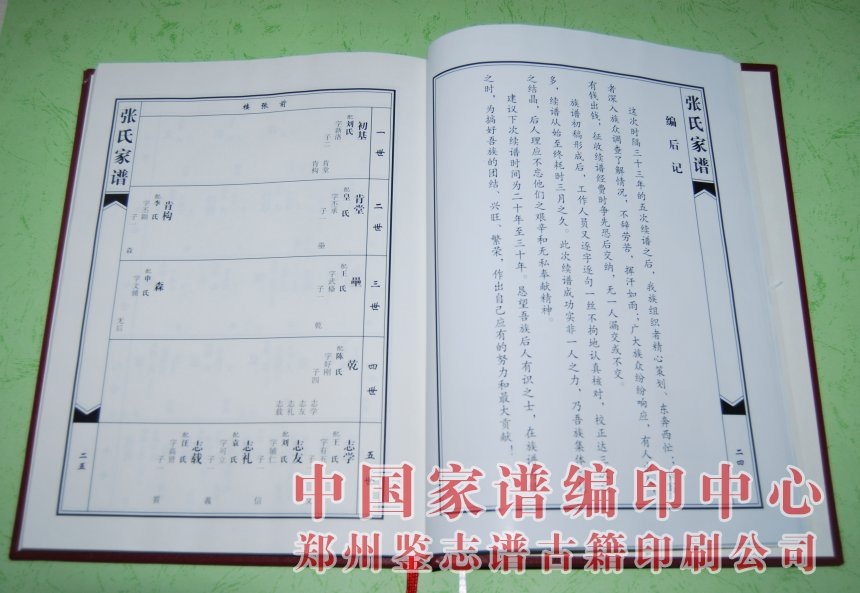 张氏家谱
编后记
这次时隔三十三年的五次续谱之后，我族组织者精心策划、东奔西忙；
者深入族众调查了解情况，不辞劳苦，挥汗如雨；广大族众纷纷响应，有人
有钱出钱，征收续谱经费时争先恐后交纳，无一人漏交或不交。
族谱初稿形成后，工作人员又逐字逐句一丝不拘地认真核对，校正达
多，续谱从始至终耗时三月之久。此次续谱成功实非一人之力，乃吾族集体
之结晶，后人理应不忘他们之艰辛和无私奉献精神。
建议下次续谱时间为二十年至三十年。恳望吾族后人有识之士，在族谱
之时，为搞好吾族的团结、兴旺、繁荣，作出自己应有的努力和最大贡献！
二四
前张楼
一世
初基
配刘氏
子二
肯堂
肯构
二世
肯堂
配吴氏
子一
肯构
配李氏
子一
森
三世
配王氏
子一
乾
森
配申氏
无后
四世
乾
配陈氏
字好刚
子四
志学
志友
志礼
志载
五世
志学
配王氏
志友
配刘氏
字辅仁
子一
信
志礼
配袁氏
字可立
子一
义
志载
配汪氏
子一
张氏家谱
二五
中国家谱编印中心
郑州鉴志谱古籍印刷公司